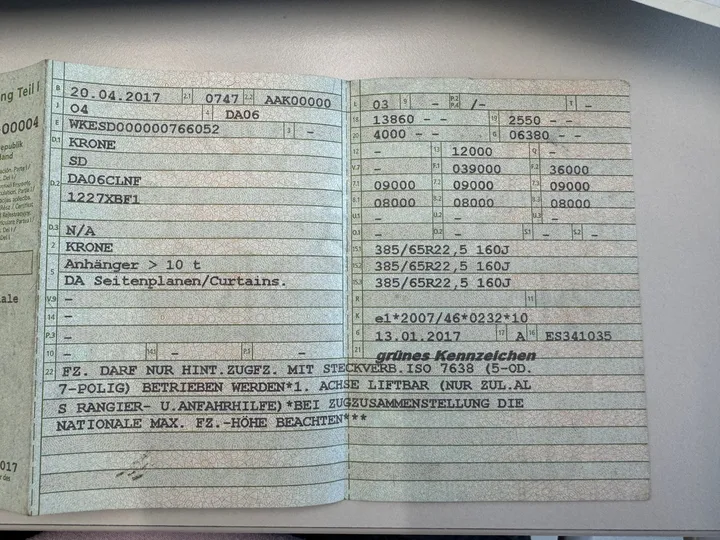 ng Teil I
00004
B 20.04.2017 2.1 0747 2.2 AAK00000
J 04 4 DA06
E WKESD000000766052 3 -
D.1 KRONE
SD
D.2 DA06CLNF
1227XBF1
D.3 N/A
2 KRONE
5 Anhänger > 10 t
DA Seitenplanen/Curtains.
V.9 -
14 -
-
10 - 14.1 - P.3 -
L 03 9 - P.2 P.4 /- T -
18 13860 - - 19 2550 - -
20 4000 - - G 06380 - -
12 - 13 12000 Q -
V.7 - F.1 039000 F.2 36000
7.1 09000 7.2 09000 7.3 09000
8.1 08000 8.2 08000 8.3 08000
U.1 - U.2 - U.3 -
- - S.1 - S.2 -
15.1 385/65R22,5 160J
15.2 385/65R22,5 160J
15.3 385/65R22,5 160J
R 11
K e1*2007/46*0232*10
6 13.01.2017 17 A 16 ES341035
21 grünes Kennzeichen
22 FZ. DARF NUR HINT.ZUGFZ. MIT STECKVERB.ISO 7638 (5-OD.
7-POLIG) BETRIEBEN WERDEN*1. ACHSE LIFTBAR (NUR ZUL.AL
S RANGIER- U.ANFAHRHILFE)*BEI ZUGZUSAMMENSTELLUNG DIE
NATIONALE MAX. FZ.-HÖHE BEACHTEN***